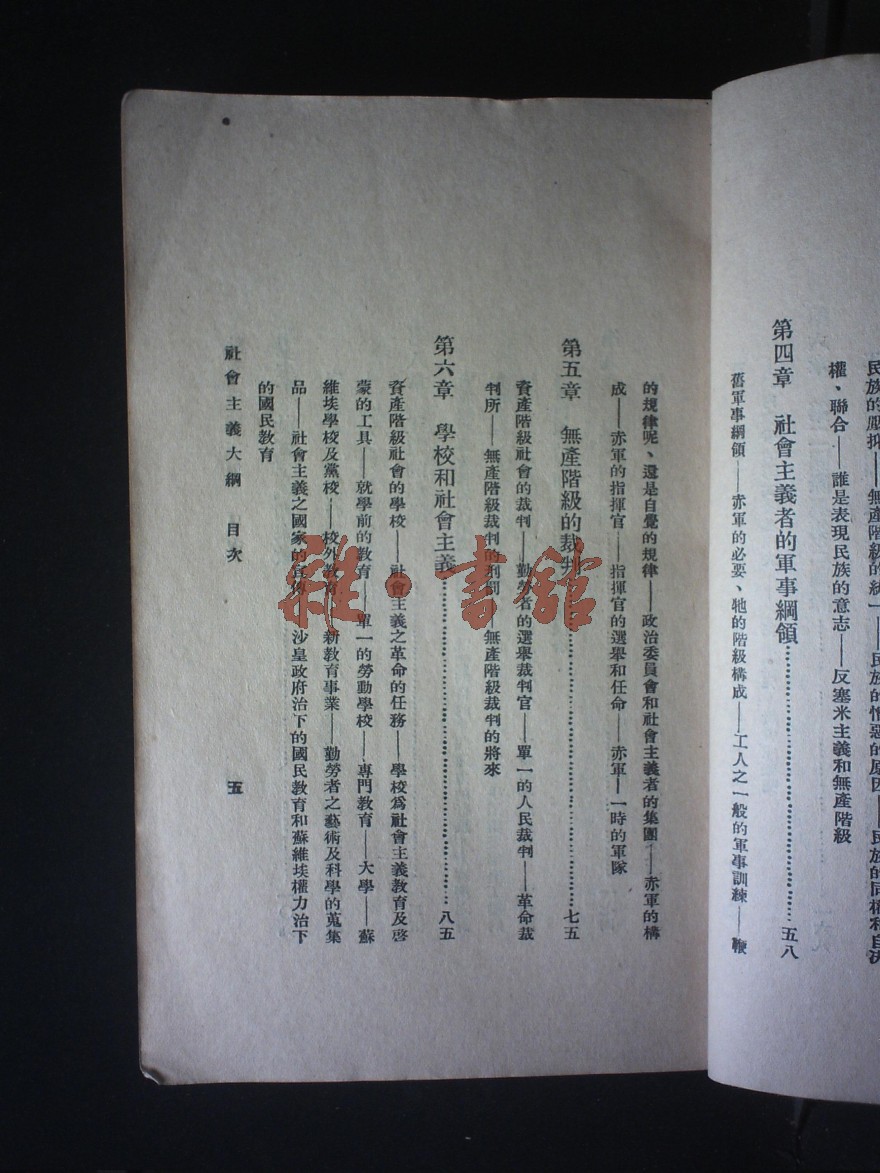 民族的壓抑——無產階級的統一——民族的憎惡的原因——民族的同權和自決
權、聯合——誰是表現民族的意志——反塞米主義和無產階級
第四章　社會主義者的軍事綱領……五八
舊軍事綱領——赤軍的必要、牠的階級構成——工人之一般的軍事訓練——鞭
的規律呢、還是自覺的規律——政治委員會和社會主義者的集團——赤軍的構
成——赤軍的指揮官——指揮官的選舉和任命——赤軍——一時的軍隊
第五章　無產階級的裁判……七五
資產階級社會的裁判——勤勞者的選舉裁判官——單一的人民裁判——革命裁
判所——無產階級裁判的刑罰——無產階級裁判的將來
第六章　學校和社會主義……八五
資產階級社會的學校——社會主義之革命的任務——學校爲社會主義教育及啓
蒙的工具——就學前的教育——單一的勞動學校——專門教育——大學——蘇
維埃學校及黨校——校外教育——新教育事業——勤勞者之藝術及科學的蒐集
品——社會主義之國家的宣傳——沙皇政府治下的國民教育和蘇維埃權力治下
的國民教育
社會主義大綱　目次
五
雜·書館